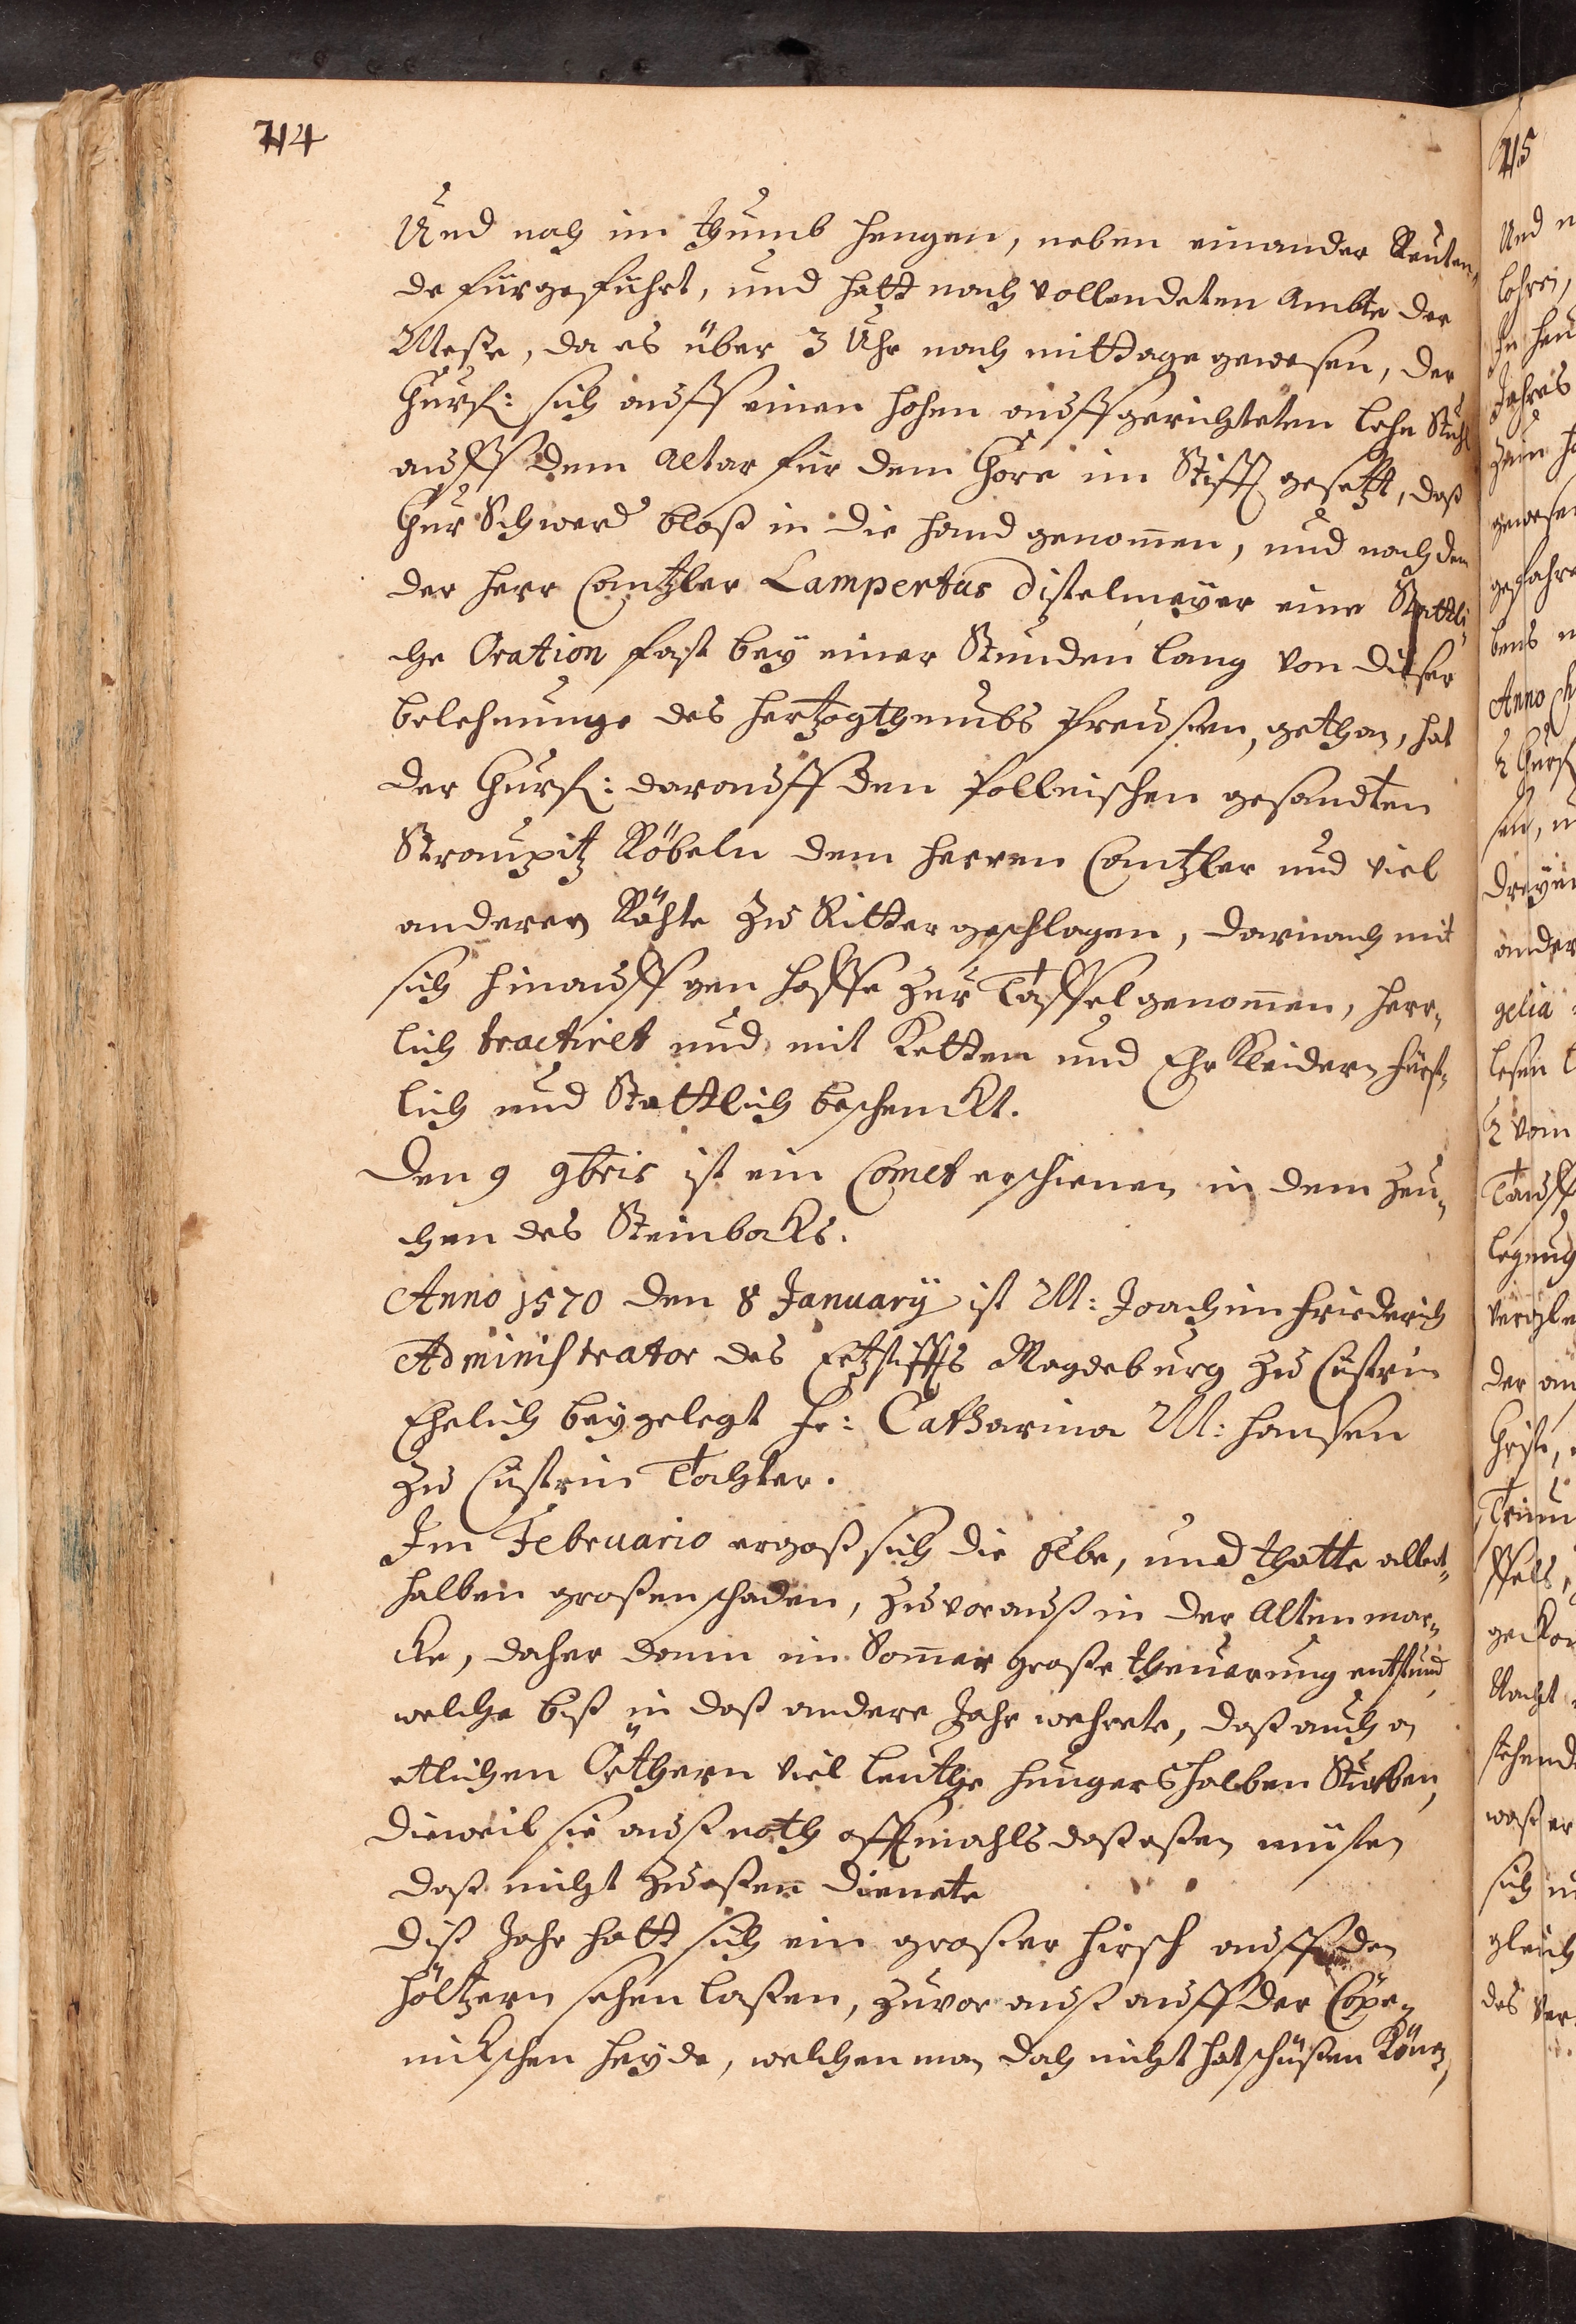 714
Und noch im Thumb hengen, neben einander Reuten,
de fürgeführt, und hatt nach vollendeten Ambte der
Meße, da es über 3 Uhr nach mittage gewesen, der
Churf: sich auff einen hohen auffgerichteten Lehn Stuhl
auff dem Altar für dem Chore im Stifft gesetzt, daß
Chur Schwerd bloß in die hand genom̄en, und nach dem
der Herr Cantzler Lampertus Distelmeÿer eine Stattli¬
che Oration fast beÿ einer Stunden lang von dieser
belehnunge des Hertzogthumbs Preussen, gethan, hat
der Churf: darauff den Pollnischen gesandten
Straupitz Röbeln dem Herren Cantzler und viel
anderen Rähte zu Ritter geschlagen, darnach mit
sich hinauff gen Hoffe zur Taffel genom̄en, herr¬
lich tractiret und mit Ketten und Ehr Kleidern fürst¬
lich und Stattlich beschenckt.
Den 9 9bris ist ein Comet erschienen in dem Zeu¬
chen des Steinbocks.
Anno 1570 den 8 Januarÿ ist M: Joachim Friederich
Administrator des Ertzstiffts Magdeburg zu Cüstrin
Ehelich beygelegt Fr: Catharina M: Hansen
zu Cüstrin Tochter.
Im Februario ergoß sich die Elbe, und thatte allent¬
halben großen schaden, zuvorauß in der Alten mar¬
cke, daher dann im Som̄er große theuerung entstund,
welche biß in daß andere Jahr wehrete, daß auch an
etlichen Örthern viel leuthe hungers halben Sturben,
dieweil sie auß noth offtmahls daß eßen müsten
daß nicht zu eßen dienete
Diß Jahr hatt sich ein großer hirsch auff den
höltzern sehen laßen, zuvor auß auff der Cöpe¬
nickschen heyde, welchen man doch nicht hat schüßen Könen,
715
Und
Jahres
gewesen
Anno
gelia
2 vom